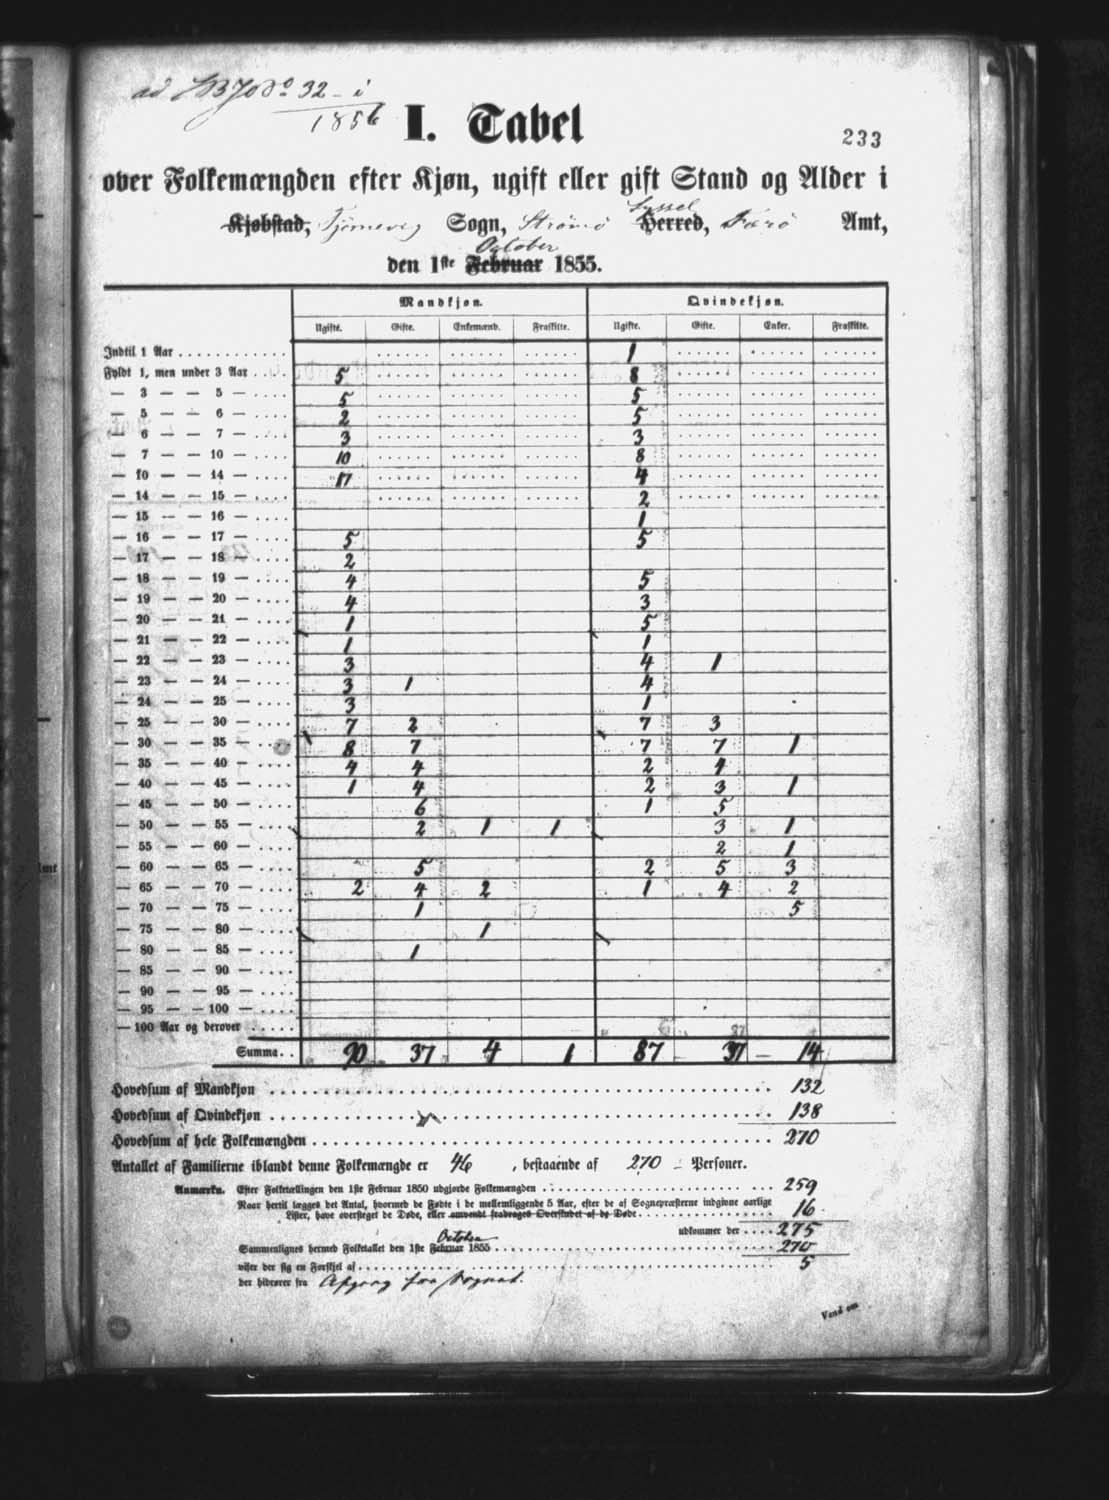 ad No 32 - i
1856
I. Tabel
233
over Folkemængden efter Kjøn, ugift eller gift Stand og Alder i
Syssel
Kjøbstad, Tjørnevig Sogn, Strømø Herred, Færø Amt,
October
den 1ste Februar 1855.
Mandkjøn. Qvindekjøn.
Ugifte. Gifte. Enkemænd. Fraskilte. Ugifte. Gifte. Enker. Fraskilte.
Indtil 1 Aar . . . . . . . . . . . . 1
Fyldt 1, men under 3 Aar . . . . 5 8
— 3 — — 5 — . . . . 5 5
— 5 — — 6 — . . . . 2 5
— 6 — — 7 — . . . . 3 3
— 7 — — 10 — . . . . 10 8
— 10 — — 14 — . . . . 17 4
— 14 — — 15 — . . . . 2
— 15 — — 16 — . . . . 1
— 16 — — 17 — . . . . 5 5
— 17 — — 18 — . . . . 2
— 18 — — 19 — . . . . 4 5
— 19 — — 20 — . . . . 4 3
— 20 — — 21 — . . . . 1 5
— 21 — — 22 — . . . . 1 1
— 22 — — 23 — . . . . 3 4 1
— 23 — — 24 — . . . . 3 1 4
— 24 — — 25 — . . . . 3 1
— 25 — — 30 — . . . . 7 2 7 3
— 30 — — 35 — . . . . 8 7 7 7 1
— 35 — — 40 — . . . . 4 4 2 4
— 40 — — 45 — . . . . 1 4 2 3 1
— 45 — — 50 — . . . . 6 1 5
— 50 — — 55 — . . . . 2 1 1 3 1
— 55 — — 60 — . . . . 2 1
— 60 — — 65 — . . . . 5 2 5 3
— 65 — — 70 — . . . . 2 4 2 1 4 2
— 70 — — 75 — . . . . 1 5
— 75 — — 80 — . . . . 1
— 80 — — 85 — . . . . 1
— 85 — — 90 — . . . .
— 90 — — 95 — . . . .
— 95 — — 100 — . . . .
— 100 Aar og derover . . . . .
Summa. . 90 37 4 1 87 37 14
Hovedsum af Mandkjøn . . . . 132
Hovedsum af Qvindekjøn . . . . 138
Hovedsum af hele Folkemængden . . . . 270
Antallet af Familierne iblandt denne Folkemængde er 46 , bestaaende af 270 - Personer.
Anmærkn. Efter Folketællingen den 1ste Februar 1850 udgjorde Folkemængden . . . . 259
Naar hertil lægges det Antal, hvormed de Fødte i de mellemliggende 5 Aar, efter de af Sognepræsterne indgivne aarlige
Lister, have oversteget de Døde, eller omvendt fradrages Overskudet af de Døde . . . . 16
udkommer der . . . . 275
October
Sammenlignes hermed Folketallet den 1ste Februar 1855 . . . . 270
viser der sig en Forskjel af . . . . 5
der hidrører fra Afgang fra Sognet.
Vend om